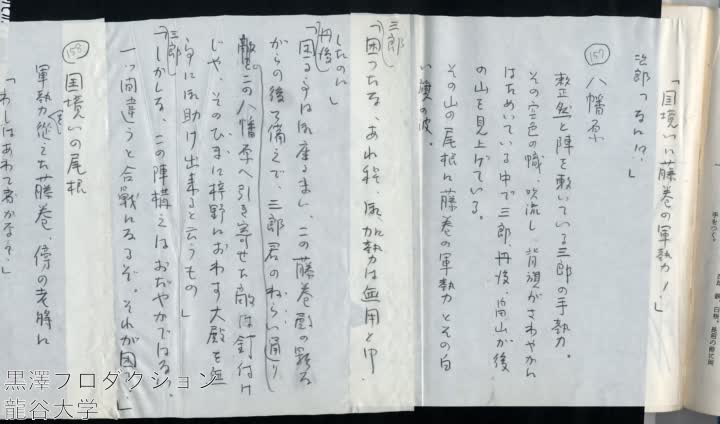 「国境いに藤巻の軍勢!」
次郎「なに!?」
157
八幡原
整然と陣を敷いている三郎の手勢。
その空色の幟、吹流し、背旗がさわやかに
はためいている中で三郎、丹後、畠山が後
の山を見上げている。
その山の尾根に藤巻の軍勢とその白
い旗の波。
三郎
「困ったな、あれ程、御加勢は無用と申
したのに」
丹後
「困る事は御座るまい、この藤巻殿の騎馬
からの後ろ備えで、三郎君のねらい通り
敵をこの八幡原へ引き寄せた、敵は釘付け
じや、そのひまに梓野におわす大殿を無
事に御助け出来ると云うもの」
三郎
「しかしな、この陣構えはおだやかではない、
一つ間違うと合戦になるぞ。それが困る」
158
国境いの尾根
軍勢を從えた藤巻、傍の老將に
「わしはあわて者かな?」
黒澤プロダクション
龍谷大学